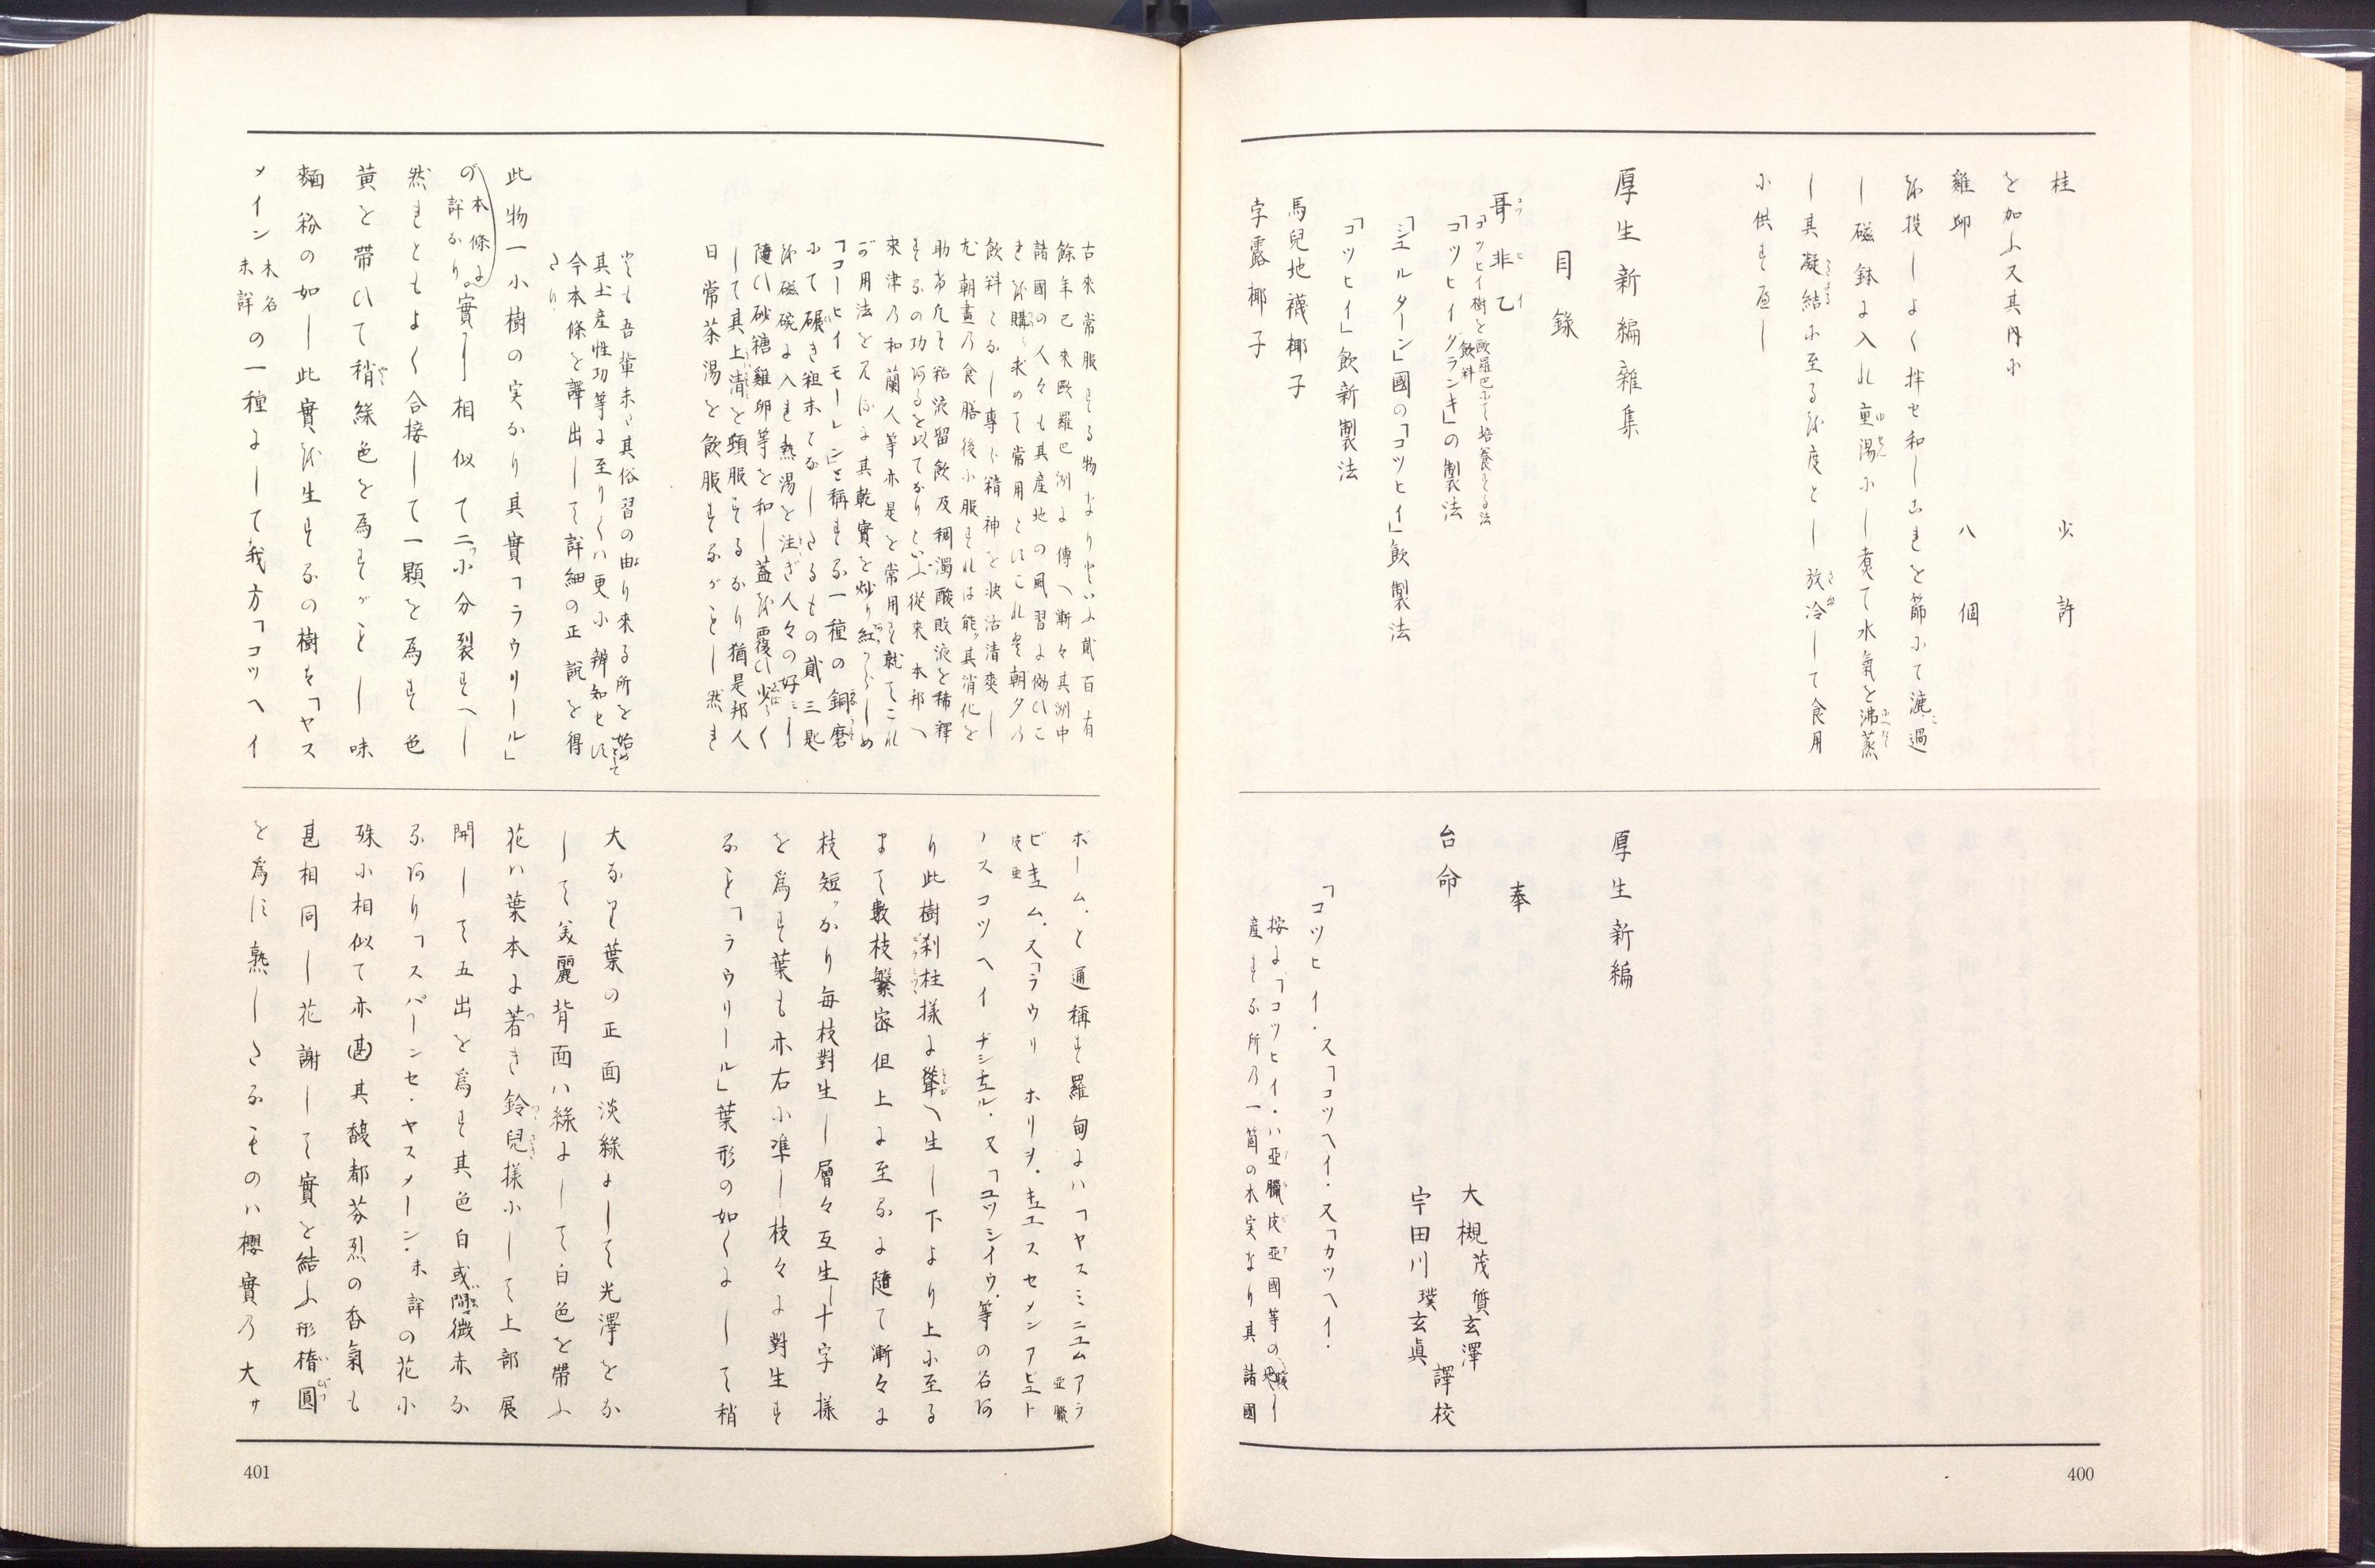 桂　少許
を加ふ又其内小
雞卵　八個
を投しよく拌セ和しこれを篩小て漉過
し磁鉢に入れ重湯小し煮て水氣を沸蒸
し其凝結小至るを度とし放冷して食用
小供すべし
厚生新編雜集
目録
哥非乙
「コツヒイ樹を歐羅巴にて培養する法
「コツヒイダランキ」飲料の製法
「ジエルターン」國の「コツヒイ」飲製法
「コツヒイ」飲新製法
馬兒地襪椰子
孛露椰子
厚生新編
奉
台命
大槻茂質玄澤
宇田川璞玄眞
譯校
「コツヒイ・又「コツヘイ・又「カツヘイ・
按に「コツヒイ・ハ亞臘皮亞國等の地
産する所乃一箇の木実なり其諸國
400
古來常服する物なりといふ貳百有
餘年已來歐羅巴洲に傳へ漸々其洲中
諸國の人々も其産地の風習に傚ひこ
れを購ひ求めて常用とにこれを朝夕乃
飲料となし專ら精神を快活清爽し
尤朝晝乃食膳後小服すれは能其消化を
助け凡そ粘液留飲及稠濁酸敗液を稀釋
するの功あるを以てなりといふ從來本邦へ
來津乃和蘭人等亦是を常用す就てこれ
が用法を見るに其乾實を炒り紅からしめ
「コーヒイモーレン」と稱する一種の銅磨
小て碾き粗末となしたるもの貳三匙
を磁碗に入れ熱湯を注ぎ人々の好ミより
隨ひ砂糖雞卵等を和し蓋を覆ひ少らく
して其上清を頓服するなり猶是邦人
日常茶湯を飲服するがことし然れ
とも吾輩未た其俗習の由り來る所を始めとして
其土産性功等に至りてハ更小辨知せに
今本條を譯出して詳細の正説を得
たり
此物一小樹の実なり其實「ラウリール」
の本條に詳かり實し相似て二小分裂すへし
然れともよく合接して一顆を為す色
黄を帶ひて稍緑色を為すがことし味
麺粉の如し此實を生するの樹を「ヤス
メイン木名未詳の一種にして我方「コツヘイ
ボーム・と通稱す羅甸にハ「ヤスミニユムアラ
ビキュム・亞臘皮亞又「ラウリ ホリヲ・キュエスセメンアピュト
ノスコツヘイ ヂシキュル・又「コツシイウ・等の名あ
り此樹刹柱様に聳へ生し下より上小至る
まて數枝繁密但上に至るに隨て漸々に
枝短かり毎枝對生し層々互生し十字様
を爲す葉も亦右小準し枝々に對生す
るを「ラウリール」葉形の如くにして稍
大なり葉の正面淡緑にして光澤をな
して美麗背面ハ緑にして白色を帶ふ
花ハ葉本に着き鈴兒様小して上部展
開して五出を爲す其色白或間微赤な
るあり「スパーンセ・ヤスメーン・未詳の花小
殊小相似て亦甚其馥郁芬烈の香氣も
甚相同し花謝して實を結ふ形楕圓
を爲に熟したるものハ櫻實乃大サ
401